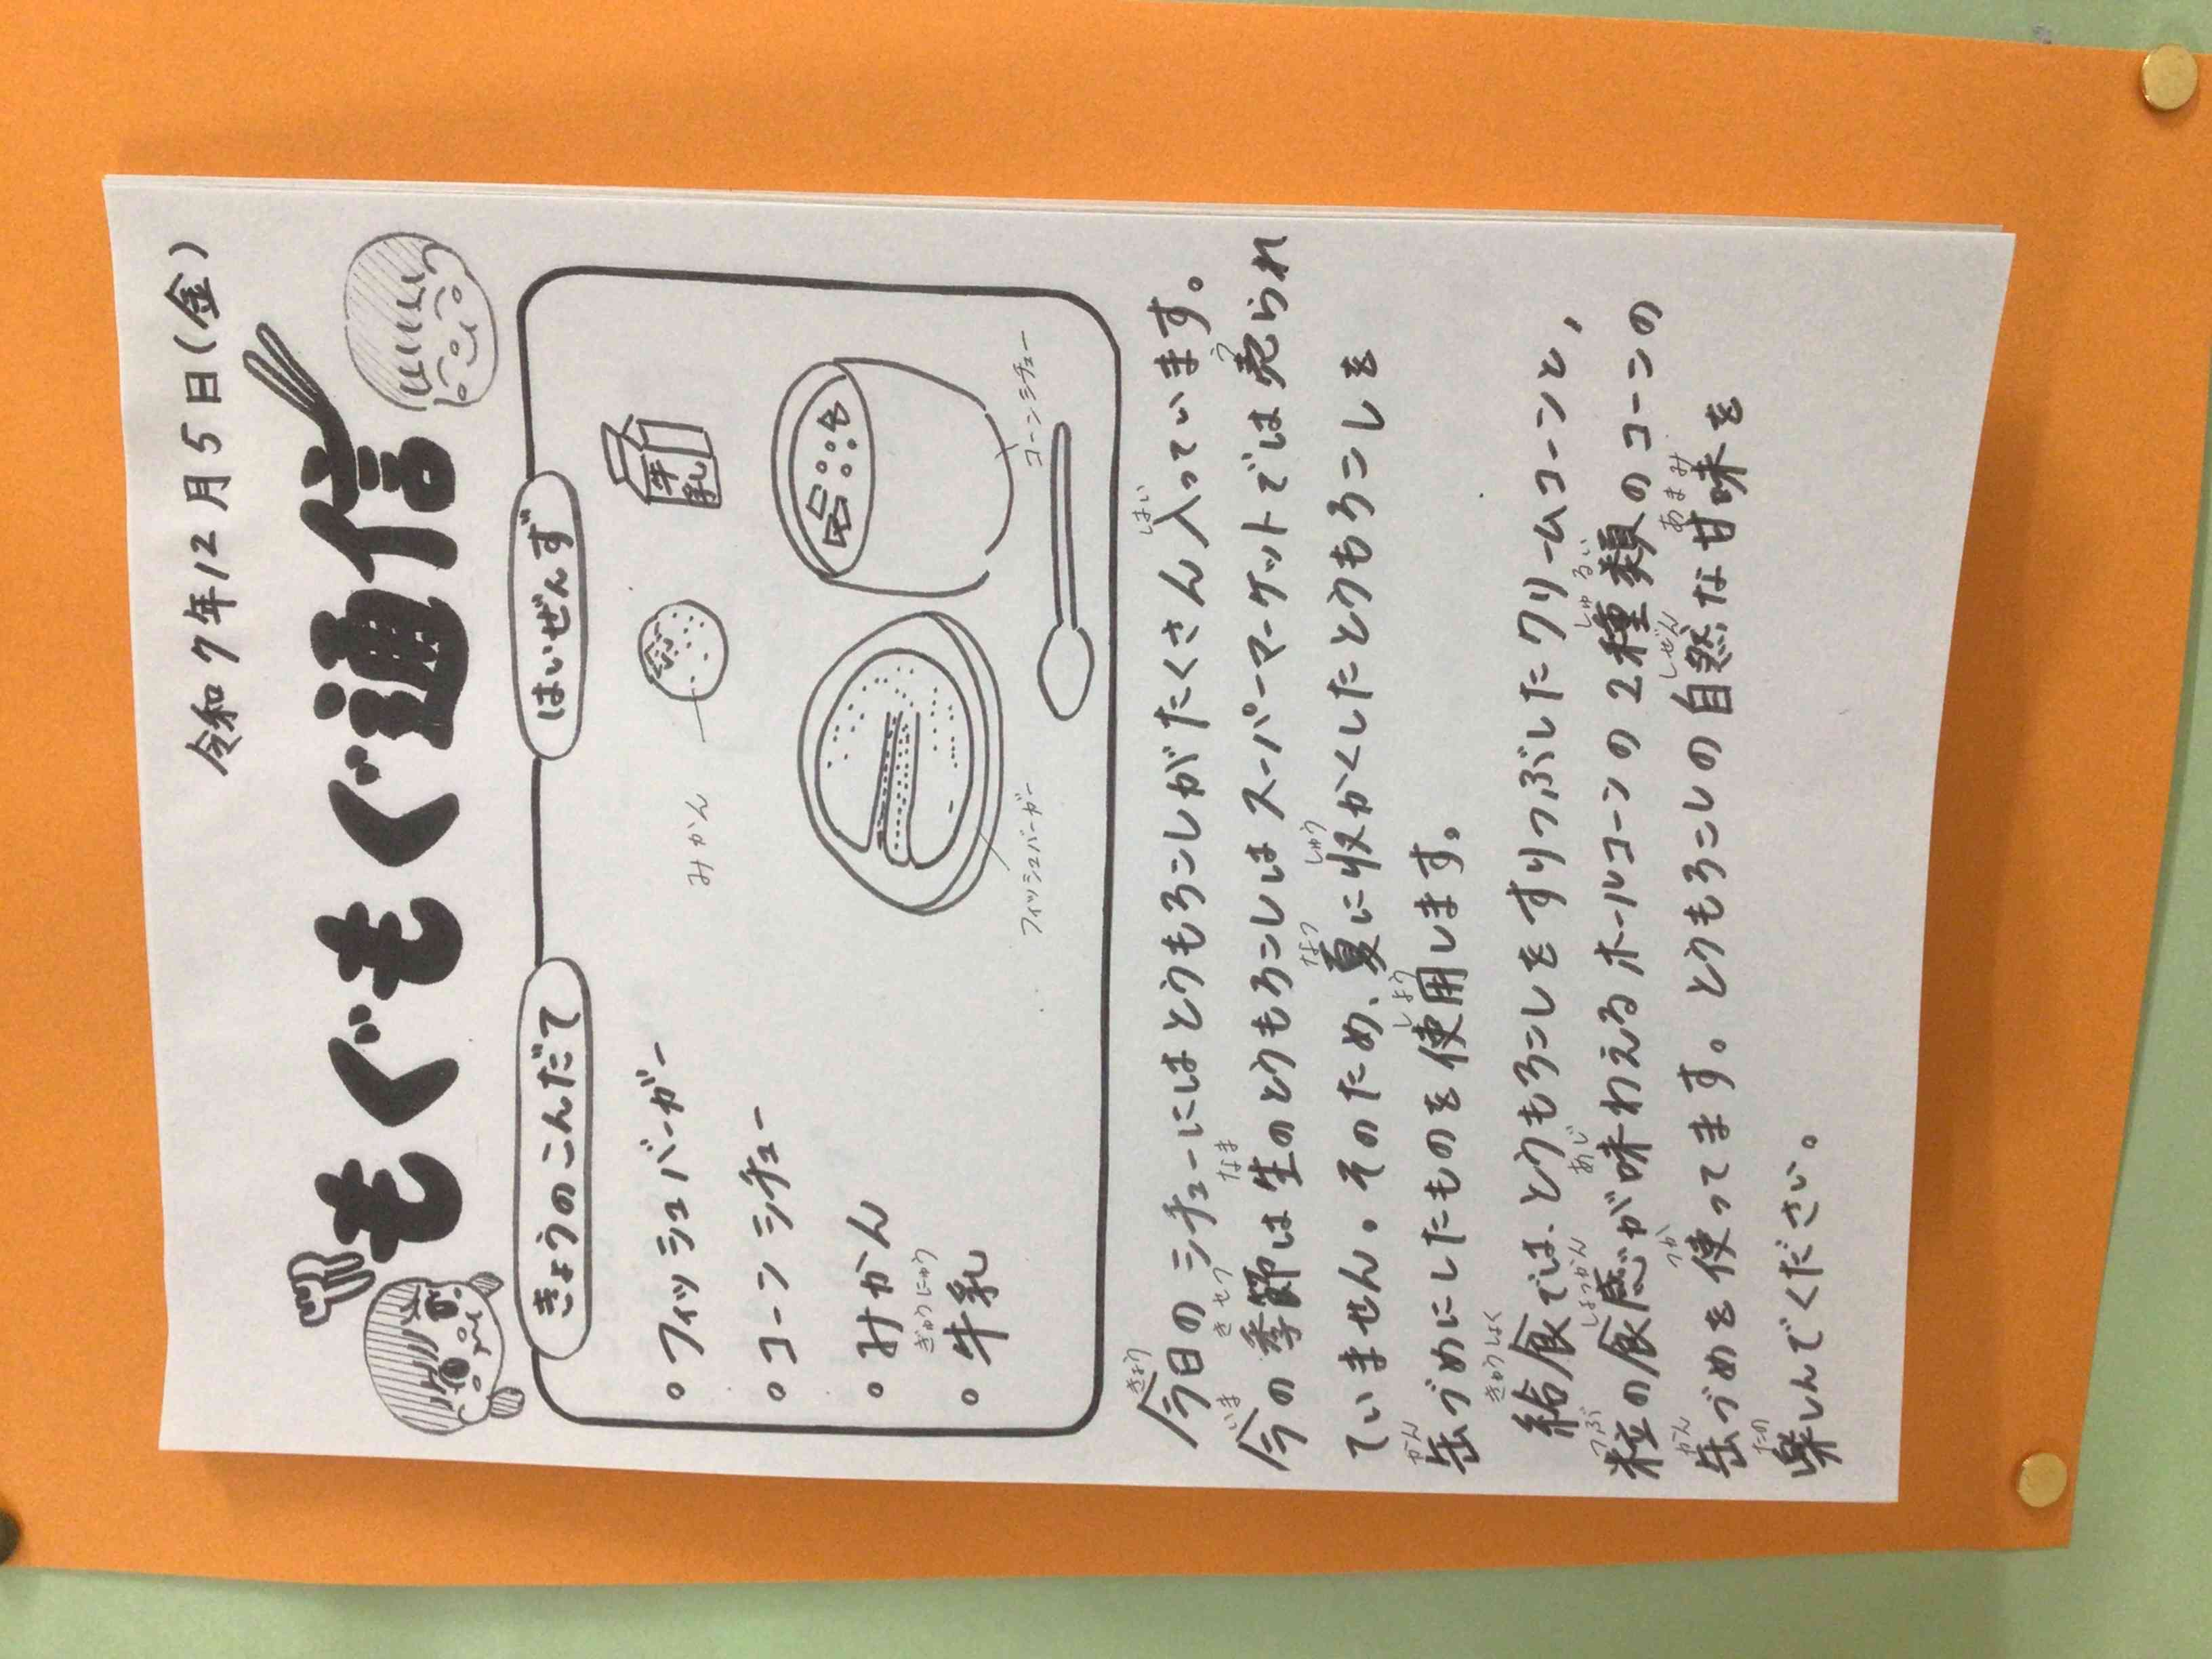 令和7年12月5日(金)
もぐもぐ通信
きょうのこんだて
はいぜんず
。フィッシュバーガー
。コーンシチュー
。みかん
ぎゅうにゅう
。牛乳
牛乳
みかん
フィッシュバーガー
コーンシチュー
きょう はい
今日のシチューにはとうもろこしがたくさん入っています。
いま きせつ なま う
今の季節は生のとうもろこしはスーパーマーケットでは売られ
なつ しゅう
ていません。そのため、夏に収かくしたとうもろこしを
かん しよう
缶づめにしたものを使用します。
きゅうしょく
給食では、とうもろこしをすりつぶしたクリームコーンと,
つぶ しょっかん あじ しゅるい
粒の食感が味わえるホールコーンの2種類のコーンの
かん つか しぜん あまみ
缶づめを使ってます。とうもろこしの自然な甘味を
たの
楽しんでください。